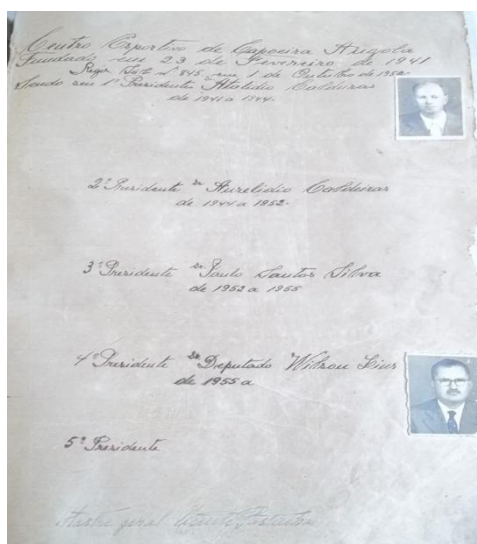 Centro Esportivo de Capoeira Angola
Fundado em 23 de Fevereiro de 1941
Nº 845 em 1 de Outubro de 1952.
Sendo seu 1º Presidente Caldeiras
de 1941 a 1944.
2º Presidente Sr Aurelidio Caldeiras
de 1944 a 1952.
3º Presidente Sr Paulo Santos Silva
de 1952 a 1955
4º Presidente Sr Deputado Wilson Lins
de 1955 a
5º Presidente
Mestre geral Vicente Pastinha